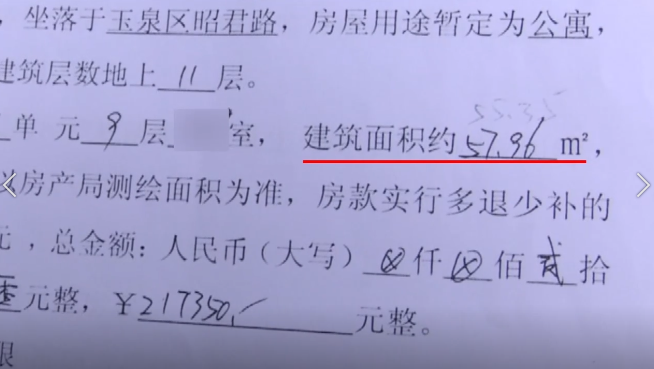 ，坐落于玉泉区昭君路，房屋用途暂定为公寓，
建筑层数地上11层。
55.35
单元9层室，建筑面积约57.96m²，
以房产局测绘面积为准，房款实行多退少补的
元，总金额：人民币（大写）⊗仟⊗佰贰拾
元整，¥217350元整。